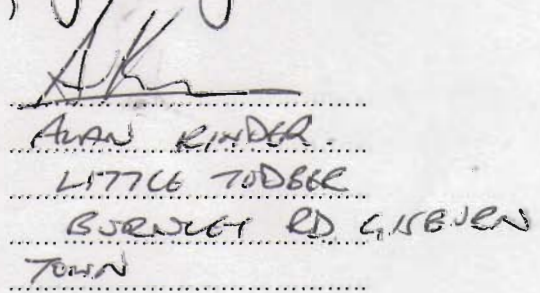 ALAN KINDER.
LITTLE TODBER
BURNLEY RD GISBURN
TOWN